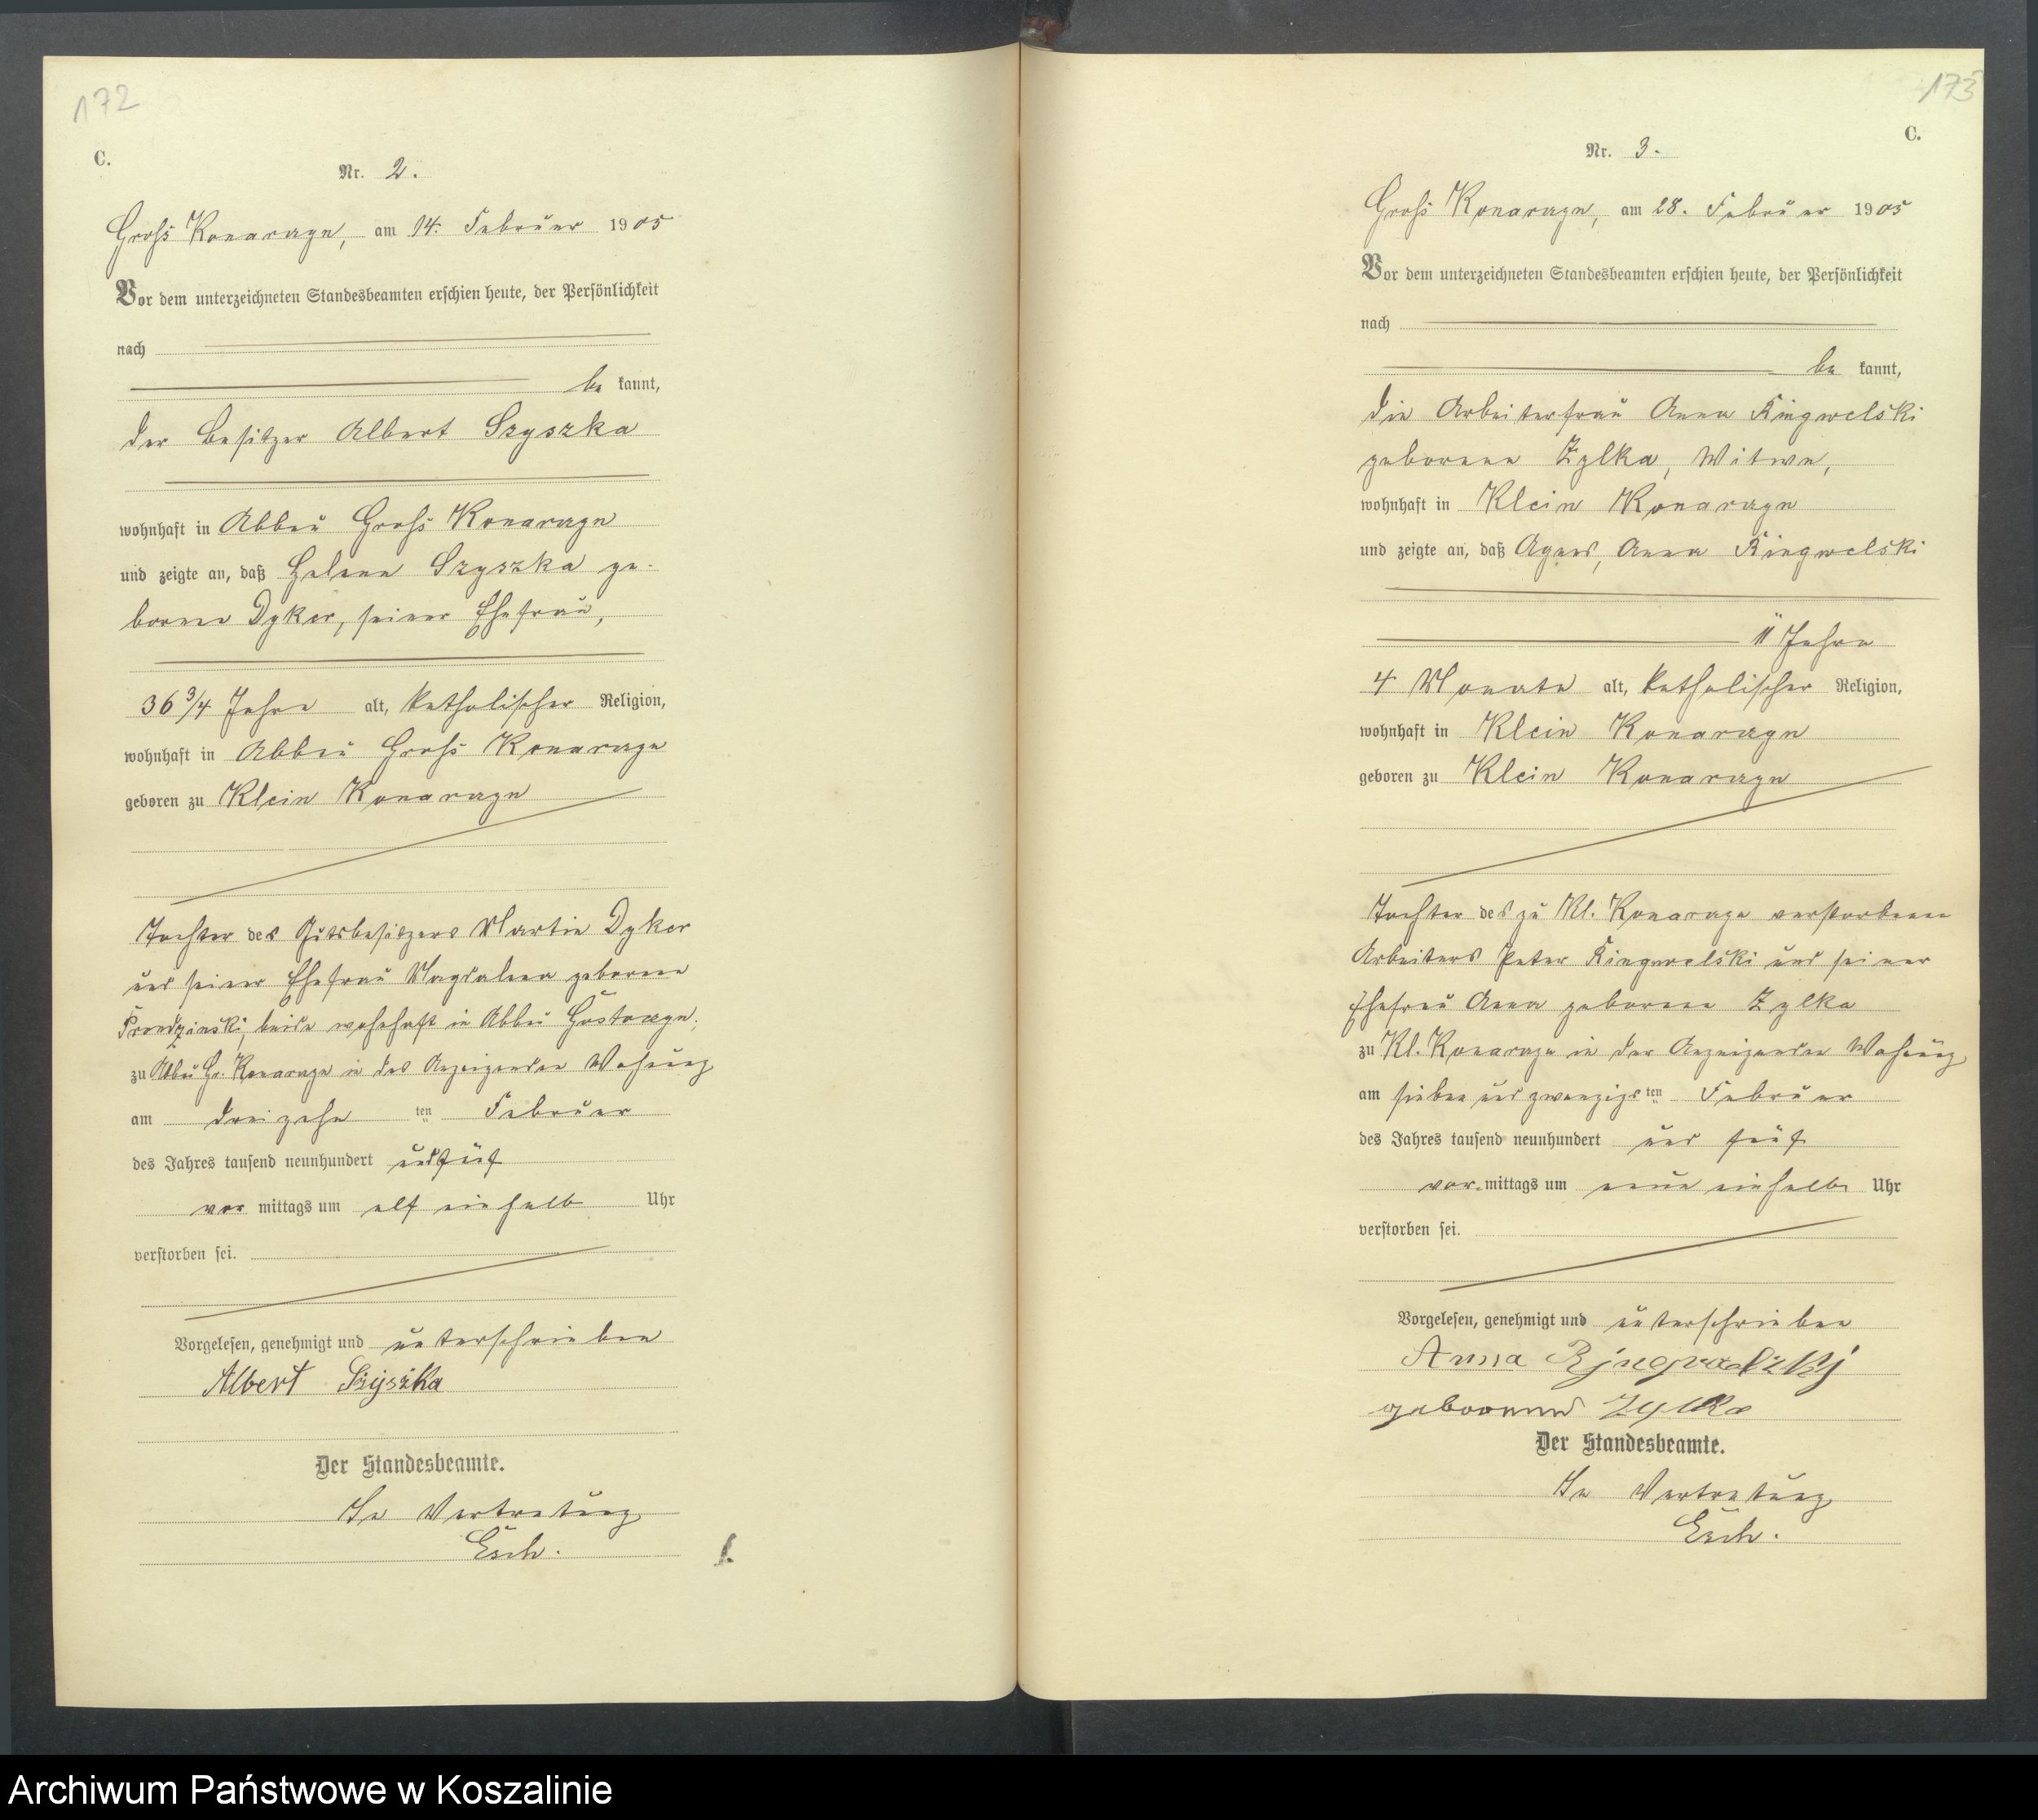 172
C.
Nr. 2.
Groß Konarzyn, am 14. Februar 1905
Vor dem unterzeichneten Standesbeamten erschien heute, der Persönlichkeit
nach
be kannt,
der Besitzer Albert Szyszka
wohnhaft in Abbau Groß Konarzyn
und zeigte an, daß Helene Szyszka ge-
borene Dyker, seiner Ehefrau,
36 3/4 Jahre alt, katholischer Religion,
wohnhaft in Abbau Groß Konarzyn
geboren zu Klein Konarzyn
Tochter des Gutsbesitzers Martin Dyker
und seiner Ehefrau Magdalena geborene
beide wohnhaft in Abbau
zu Abbau Gr. Konarzyn in des Anzeigenden Wohnung
am dreizehn ten Februar
des Jahres tausend neunhundert und fünf
vor mittags um elf einhalb Uhr
verstorben sei.
Vorgelesen, genehmigt und unterschrieben
Albert Szyszka
Der Standesbeamte.
In Vertretung
Esch.
173
C.
Nr. 3.
Groß Konarzyn, am 28. Februar 1905
Vor dem unterzeichneten Standesbeamten erschien heute, der Persönlichkeit
nach
be kannt,
die Arbeiterfrau Anna Ringwelski
geborene Zylka, Witwe,
wohnhaft in Klein Konarzyn
und zeigte an, daß Agnes, Anna Ringwelski
11 Jahre
4 Monate alt, katholischer Religion,
wohnhaft in Klein Konarzyn
geboren zu Klein Konarzyn
Tochter des zu Kl. Konarzyn verstorbenen
Arbeiters Peter Ringwelski und seiner
Ehefrau Anna geborene Zylka
zu Kl. Konarzyn in der Anzeigenden Wohnung
am sieben und zwanzigs ten Februar
des Jahres tausend neunhundert und fünf
vor mittags um neun einhalb Uhr
verstorben sei.
Vorgelesen, genehmigt und unterschrieben
Anna
geborene Zylka
Der Standesbeamte.
In Vertretung
Esch.
Archiwum Państwowe w Koszalinie